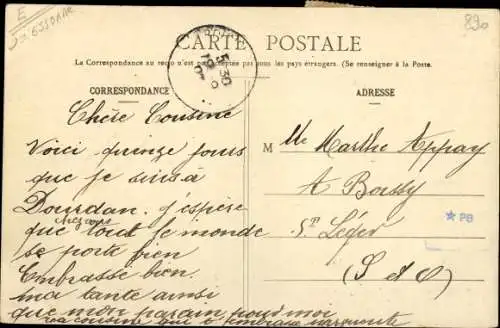 E
ESSONNE
890
CARTE POSTALE
La Correspondance au recto n'est pas acceptée par tous les pays étrangers. (Se renseigner à la Poste.
CORRESPONDANCE
Chère Cousine
Voici quinze jours
que je suis à
Dourdan. j'espère
que tout le monde
chez vous
se porte bien
Embrasse bien
ma tante ainsi
que mon parain pour moi
ta cousine qui t'embrasse
ADRESSE
M lle Marthe Appay
A Boissy
St Léger
(S et O)
★ PB